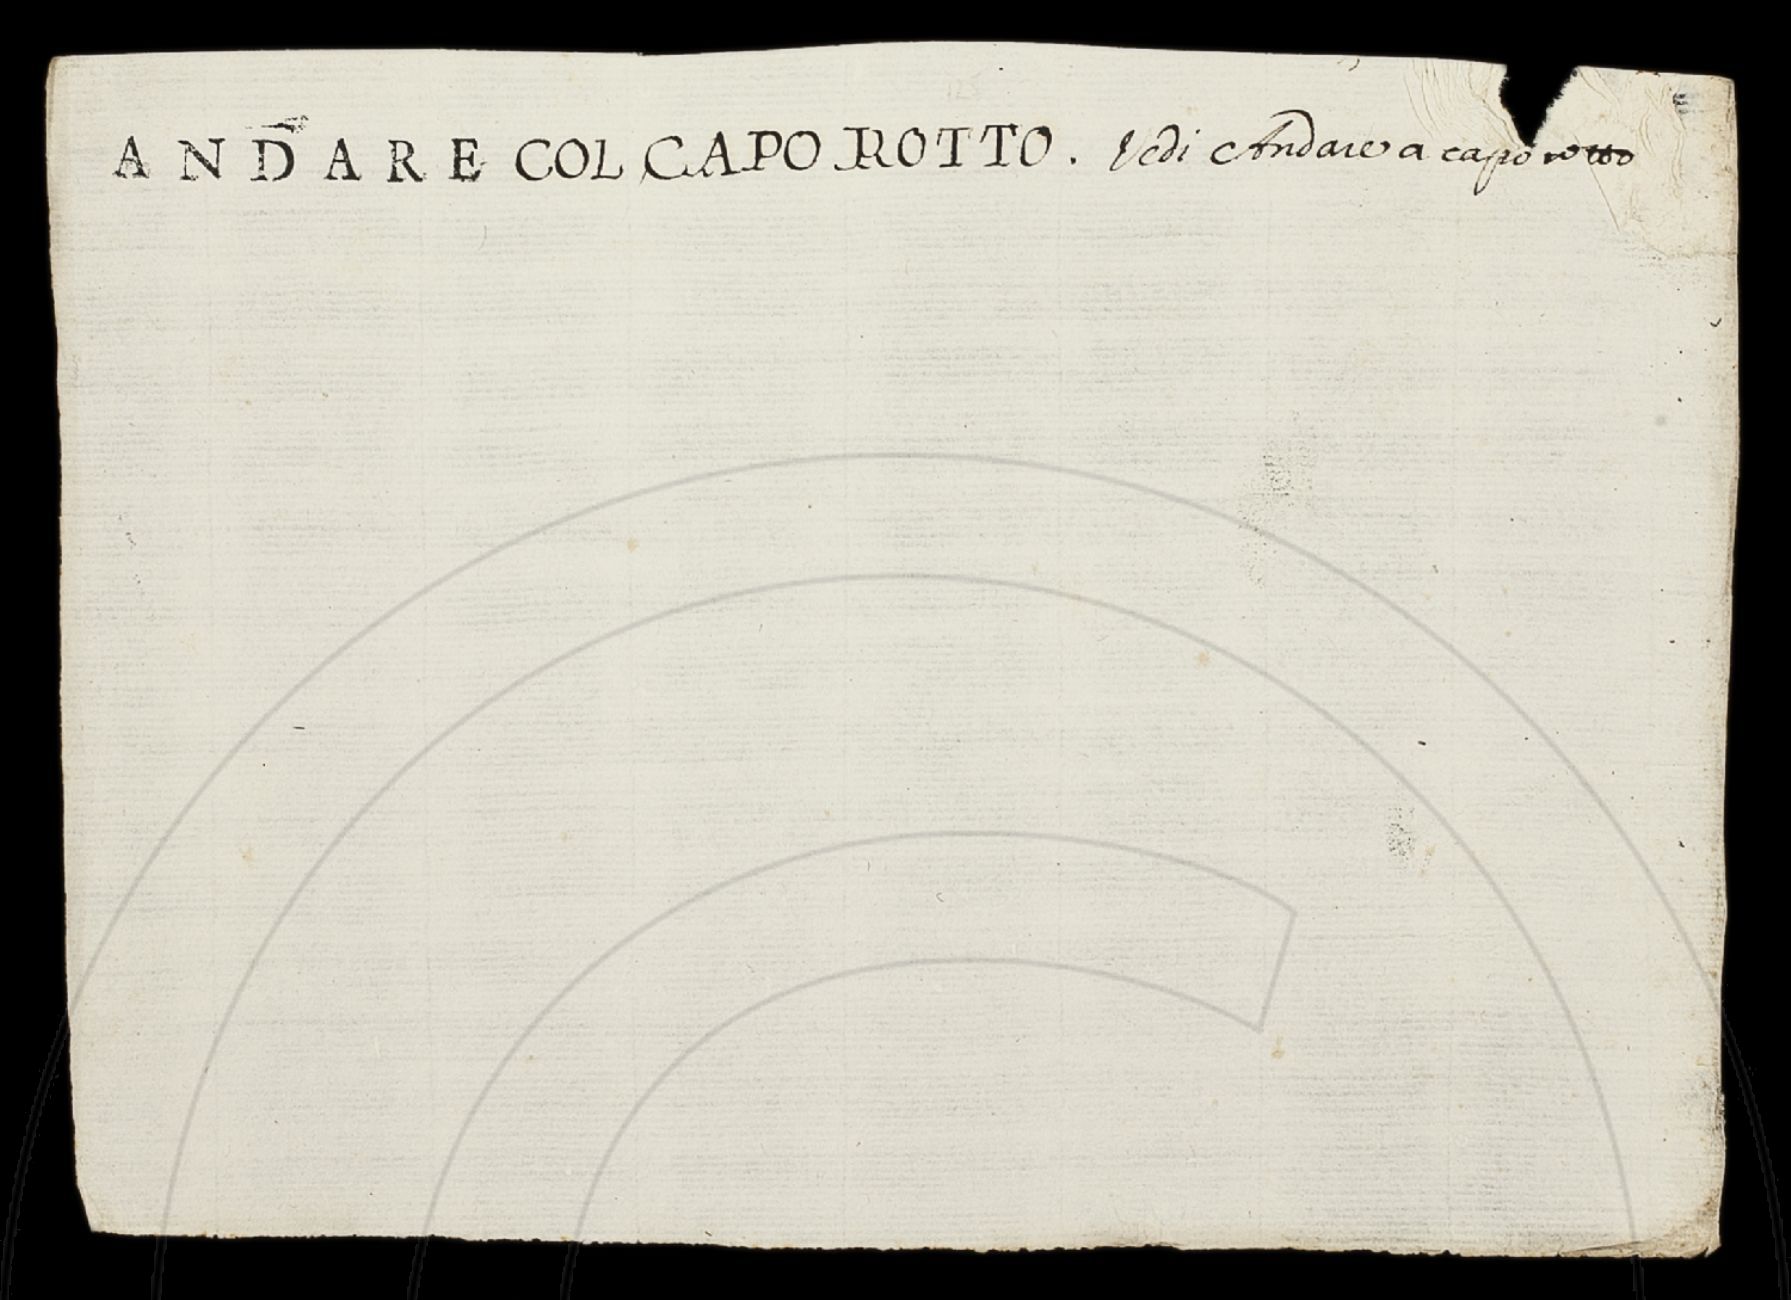 ANDARE COL CAPO ROTTO. Vedi Andare a capo rotto